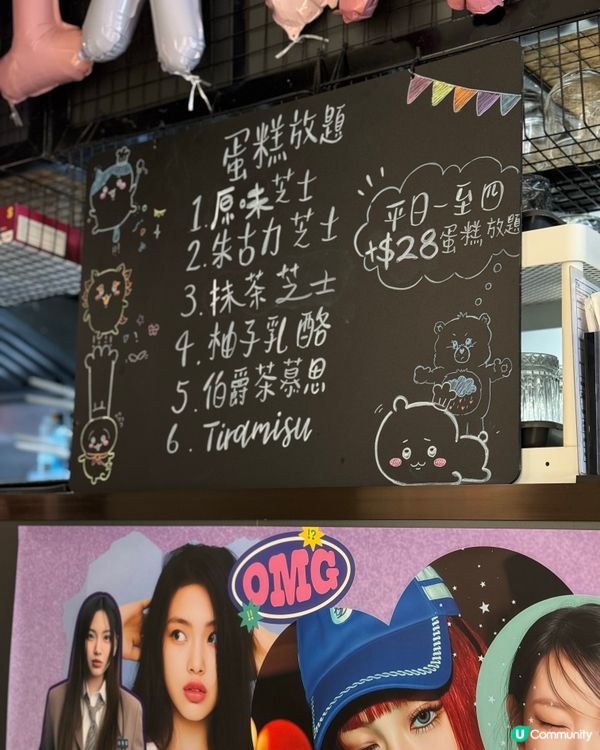 蛋糕放題
1. 原味芝士
2. 朱古力芝士
3. 抹茶芝士
4. 柚子乳酪
5. 伯爵茶慕思
6. Tiramisu
平日一至四
+$28蛋糕放題
!?
OMG
!!
U Community